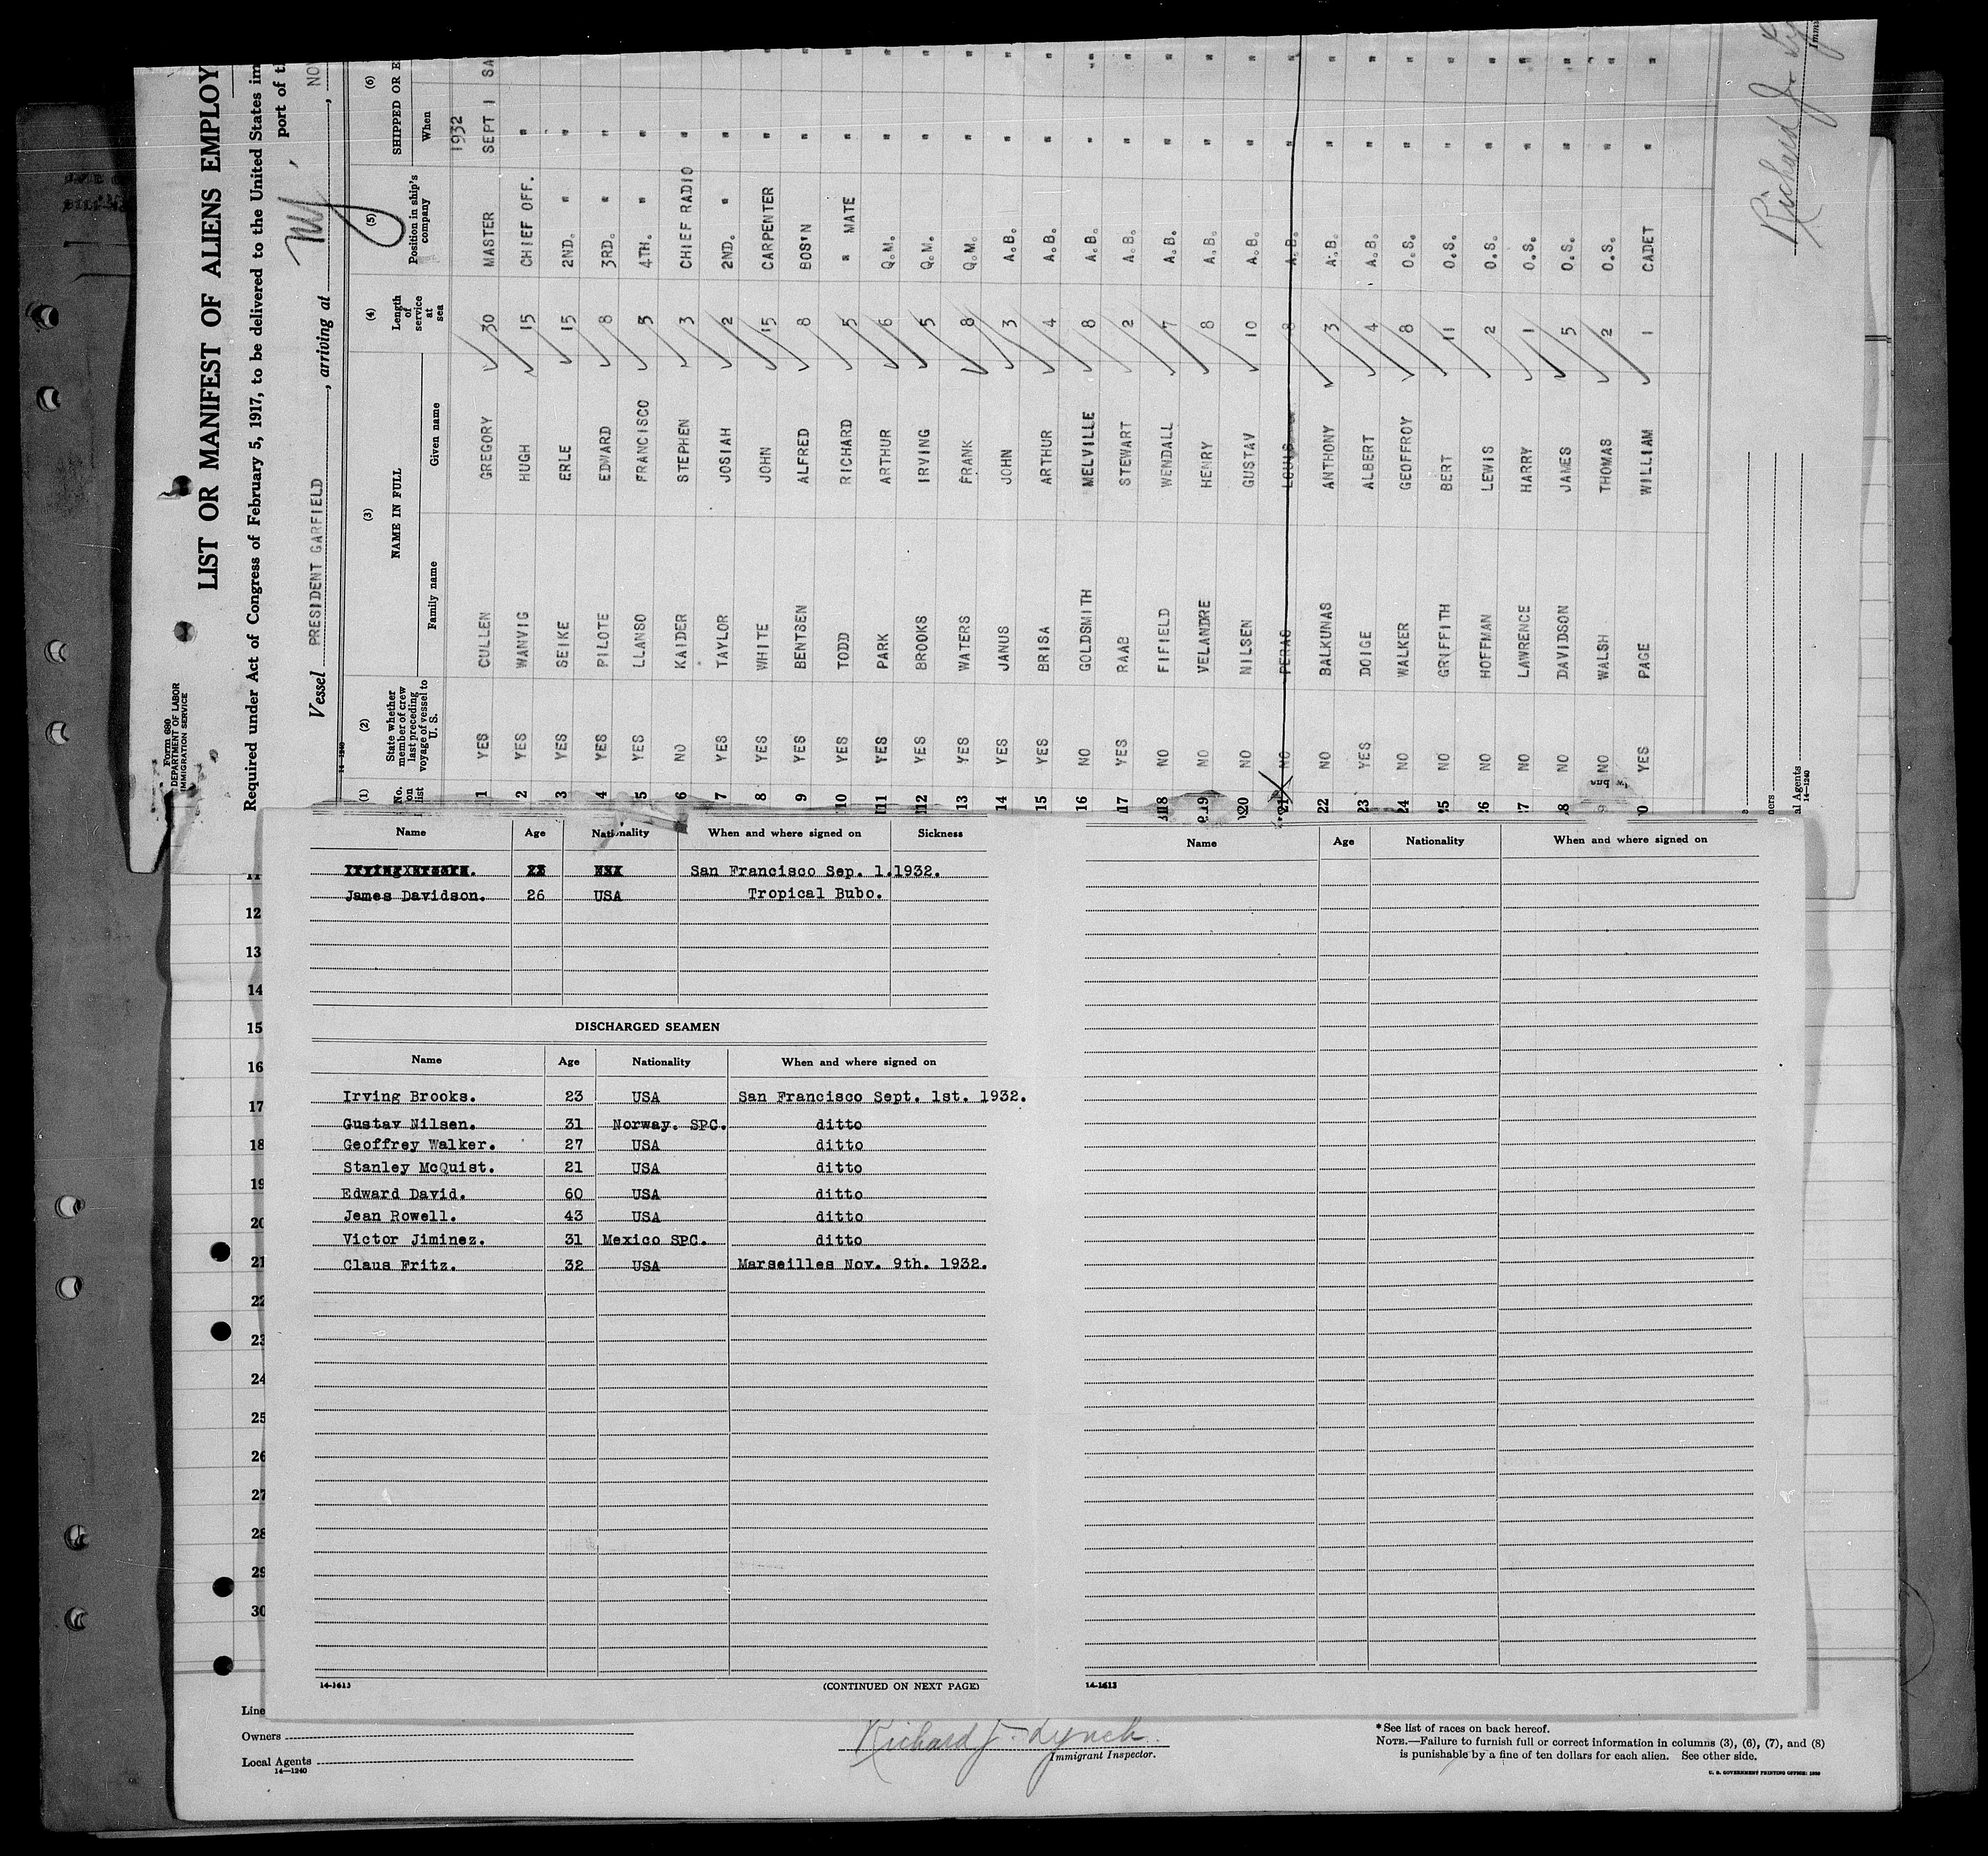 Form 680
DEPARTMENT OF LABOR
IMMIGRATION SERVICE
LIST OR MANIFEST OF ALIENS EMPLOY
Required under Act of Congress of February 5, 1917, to be delivered to the United States im
port of t
Vessel PRESIDENT GARFIELD, arriving at NY, NO
14-1240
(1) (2) (3) (4) (5) (6)
No. on list
State whether member of crew last preceding voyage of vessel to U. S.
NAME IN FULL
Family name Given name
Length of service at sea
Position in ship's company
SHIPPED OR E
When
1932
1 YES CULLEN GREGORY 30 MASTER SEPT 1 SA
2 YES WANVIG HUGH 15 CHIEF OFF. " "
3 YES SEIKE ERLE 15 2ND. " " "
4 YES PILOTE EDWARD 8 3RD. " " "
5 YES LLANSO FRANCISCO 5 4TH. " " "
6 NO KAIDER STEPHEN 3 CHIEF RADIO " "
7 YES TAYLOR JOSIAH 2 2ND. " " "
8 YES WHITE JOHN 15 CARPENTER " "
9 YES BENTSEN ALFRED 8 BOS'N " "
10 YES TODD RICHARD 5 " MATE " "
11 YES PARK ARTHUR 6 Q.M. " "
12 YES BROOKS IRVING 5 Q.M. " "
13 YES WATERS FRANK 8 Q.M. " "
14 YES JANUS JOHN 3 A.B. " "
15 YES BRISA ARTHUR 4 A.B. " "
16 NO GOLDSMITH MELVILLE 8 A.B. " "
17 YES RAAB STEWART 2 A.B. " "
18 NO FIFIELD WENDALL 7 A.B. " "
19 NO VELANDRE HENRY 8 A.B. " "
20 NO NILSEN GUSTAV 10 A.B. " "
21 NO PERAS LOUIS 8 A.B. " "
22 NO BALKUNAS ANTHONY 3 A.B. " "
23 YES DOIGE ALBERT 4 A.B. " "
24 NO WALKER GEOFFROY 8 O.S. " "
25 NO GRIFFITH BERT 11 O.S. " "
26 NO HOFFMAN LEWIS 2 O.S. " "
27 NO LAWRENCE HARRY 1 O.S. " "
8 NO DAVIDSON JAMES 5 O.S. " "
9 NO WALSH THOMAS 2 O.S. " "
0 YES PAGE WILLIAM 1 CADET " "
ners
al Agents
14-1240
Richard J. Ly
Imm
Name Age Nationality When and where signed on Sickness
San Francisco Sep. 1.1932.
James Davidson. 26 USA Tropical Bubo.
DISCHARGED SEAMEN
Name Age Nationality When and where signed on
Irving Brooks. 23 USA San Francisco Sept. 1st. 1932.
Gustav Nilsen. 31 Norway. SPC. ditto
Geoffrey Walker. 27 USA ditto
Stanley McQuist. 21 USA ditto
Edward David. 60 USA ditto
Jean Rowell. 43 USA ditto
Victor Jiminez. 31 Mexico SPC. ditto
Claus Fritz. 32 USA Marseilles Nov. 9th. 1932.
14-1613 (CONTINUED ON NEXT PAGE)
Name Age Nationality When and where signed on
14-1613
11
12
13
14
15
16
17
18
19
20
21
22
23
24
25
26
27
28
29
30
Line
Owners
Local Agents
14—1240
Richard J. Lynch
Immigrant Inspector.
* See list of races on back hereof.
NOTE.—Failure to furnish full or correct information in columns (3), (6), (7), and (8)
is punishable by a fine of ten dollars for each alien. See other side.